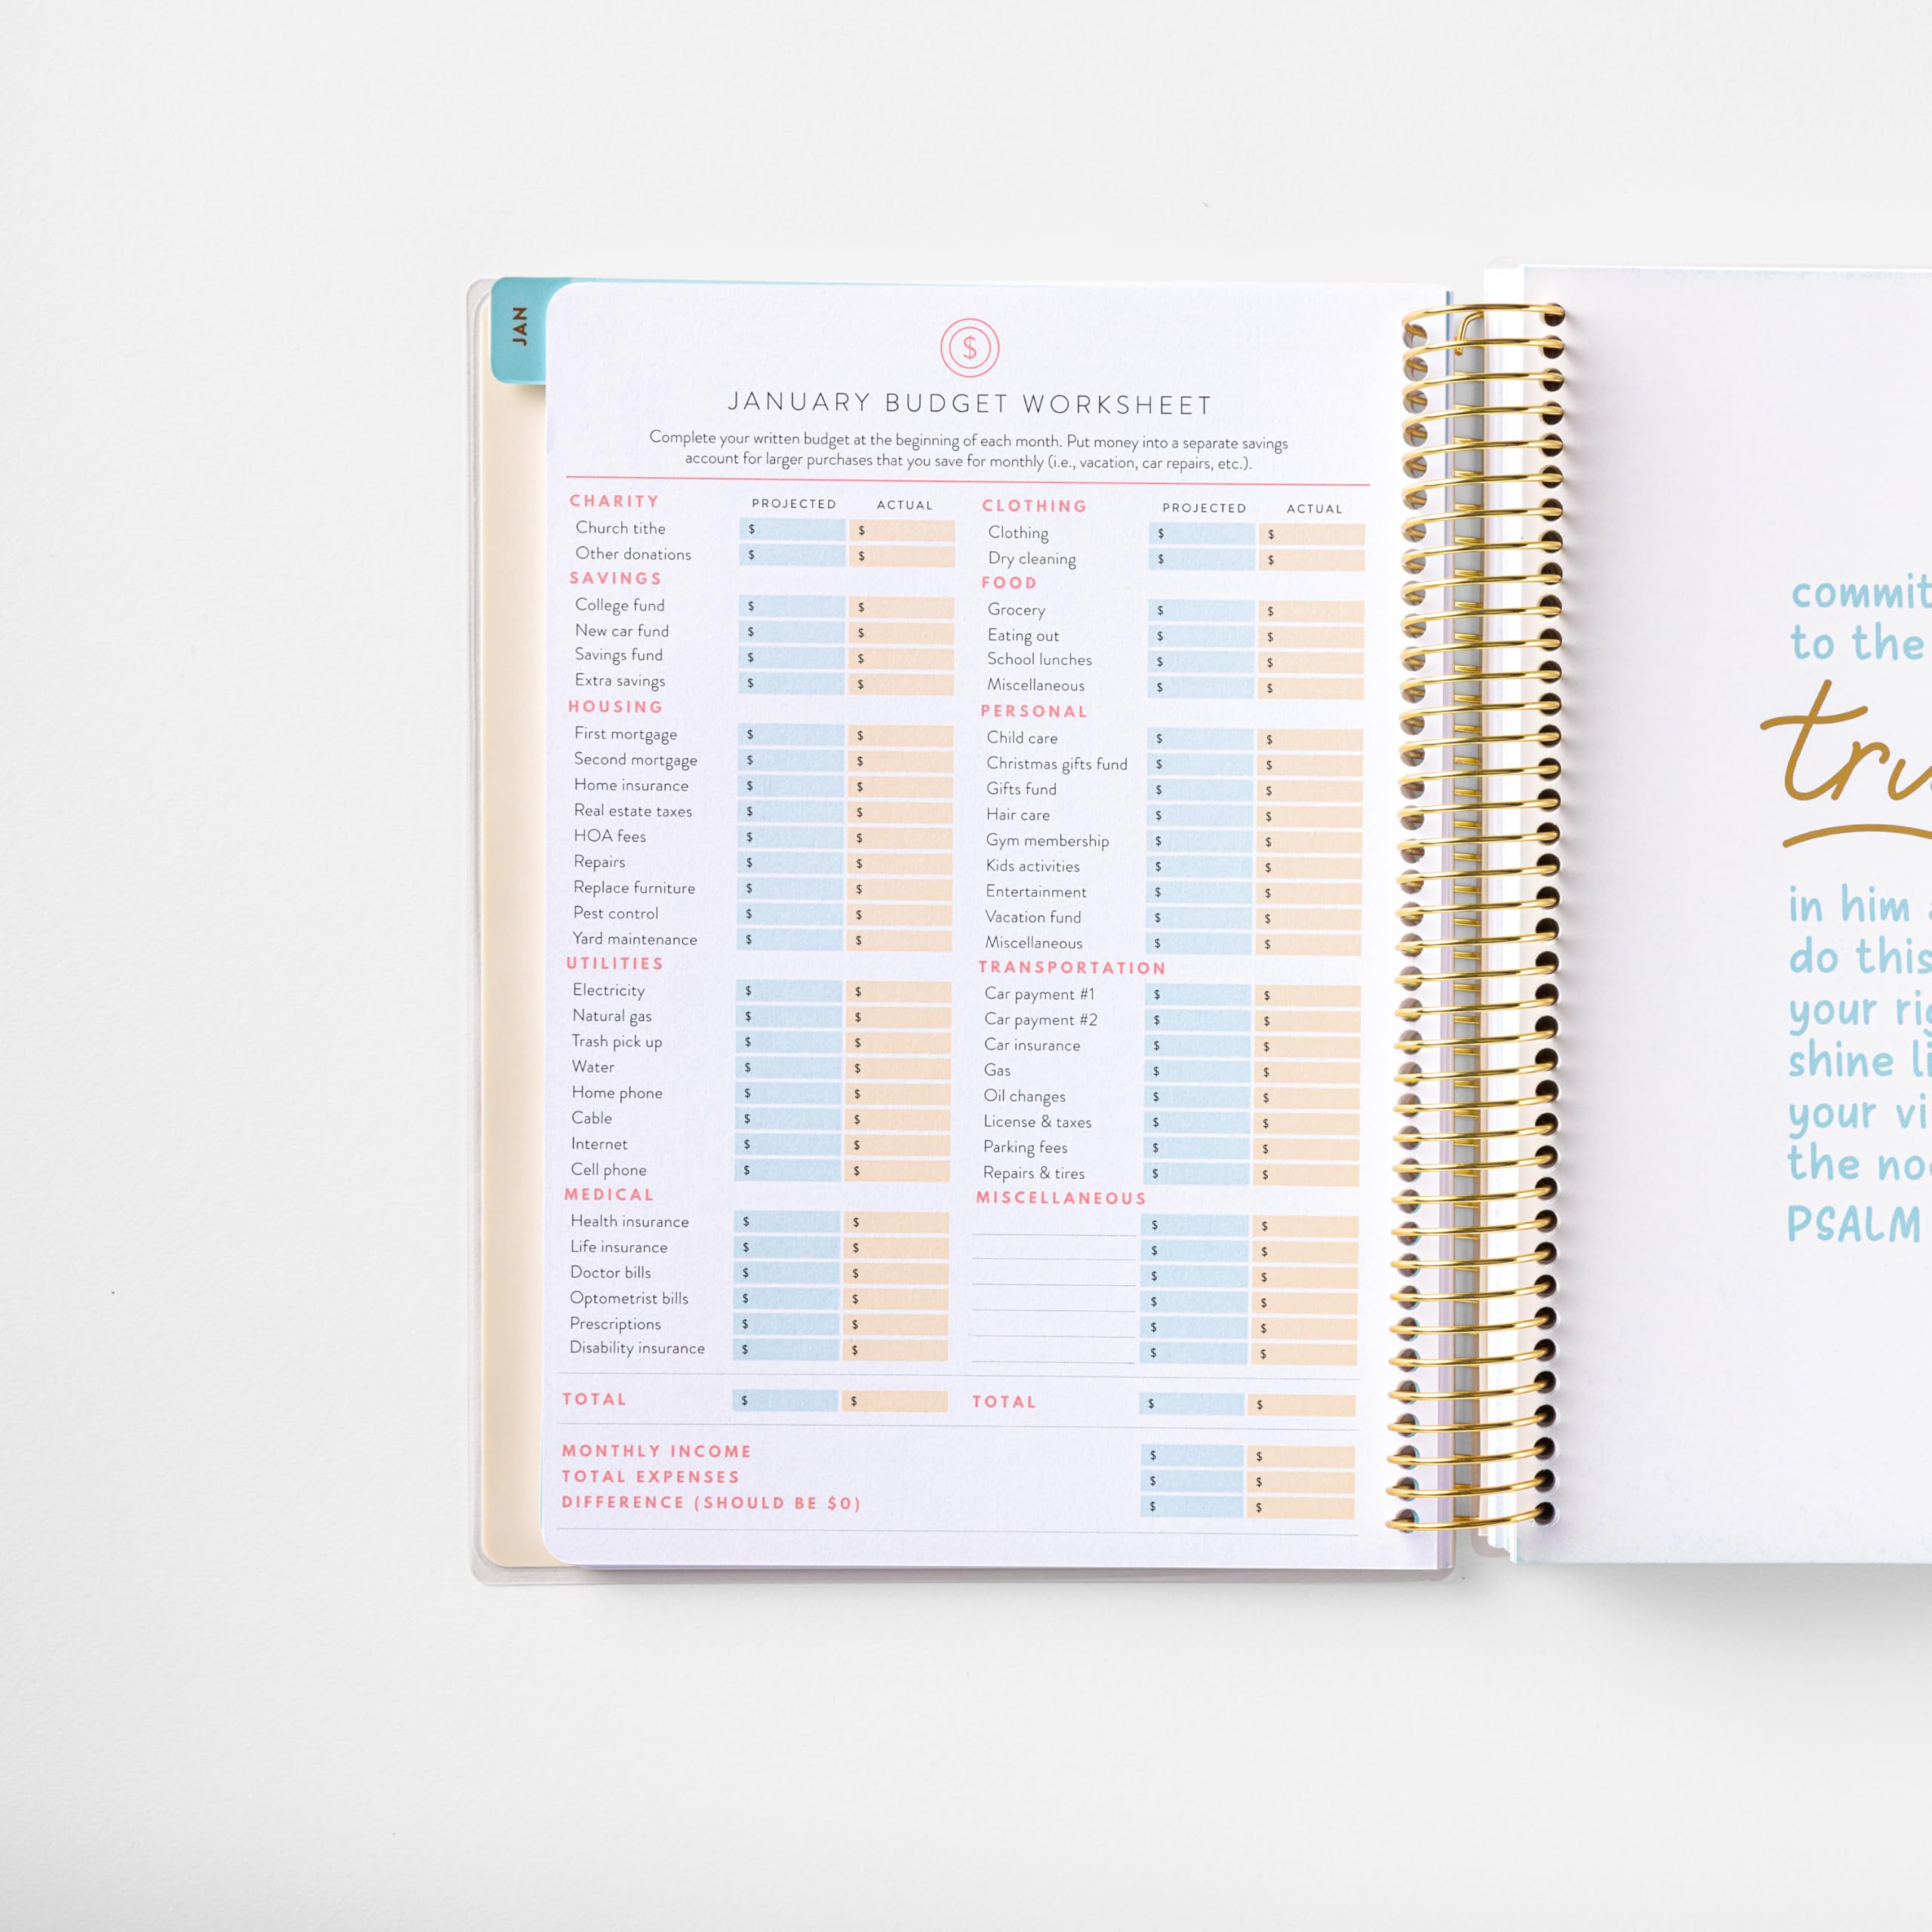 JAN
$
JANUARY BUDGET WORKSHEET
Complete your written budget at the beginning of each month. Put money into a separate savings
account for larger purchases that you save for monthly (i.e., vacation, car repairs, etc.).
CHARITY PROJECTED ACTUAL
Church tithe $ $
Other donations $ $
SAVINGS
College fund $ $
New car fund $ $
Savings fund $ $
Extra savings $ $
HOUSING
First mortgage $ $
Second mortgage $ $
Home insurance $ $
Real estate taxes $ $
HOA fees $ $
Repairs $ $
Replace furniture $ $
Pest control $ $
Yard maintenance $ $
UTILITIES
Electricity $ $
Natural gas $ $
Trash pick up $ $
Water $ $
Home phone $ $
Cable $ $
Internet $ $
Cell phone $ $
MEDICAL
Health insurance $ $
Life insurance $ $
Doctor bills $ $
Optometrist bills $ $
Prescriptions $ $
Disability insurance $ $
TOTAL $ $
CLOTHING PROJECTED ACTUAL
Clothing $ $
Dry cleaning $ $
FOOD
Grocery $ $
Eating out $ $
School lunches $ $
Miscellaneous $ $
PERSONAL
Child care $ $
Christmas gifts fund $ $
Gifts fund $ $
Hair care $ $
Gym membership $ $
Kids activities $ $
Entertainment $ $
Vacation fund $ $
Miscellaneous $ $
TRANSPORTATION
Car payment #1 $ $
Car payment #2 $ $
Car insurance $ $
Gas $ $
Oil changes $ $
License & taxes $ $
Parking fees $ $
Repairs & tires $ $
MISCELLANEOUS
$ $
$ $
$ $
$ $
$ $
$ $
TOTAL $ $
MONTHLY INCOME $ $
TOTAL EXPENSES $ $
DIFFERENCE (SHOULD BE $0) $ $
commit
to the
in him
do this
your
shine
your
the
PSALM